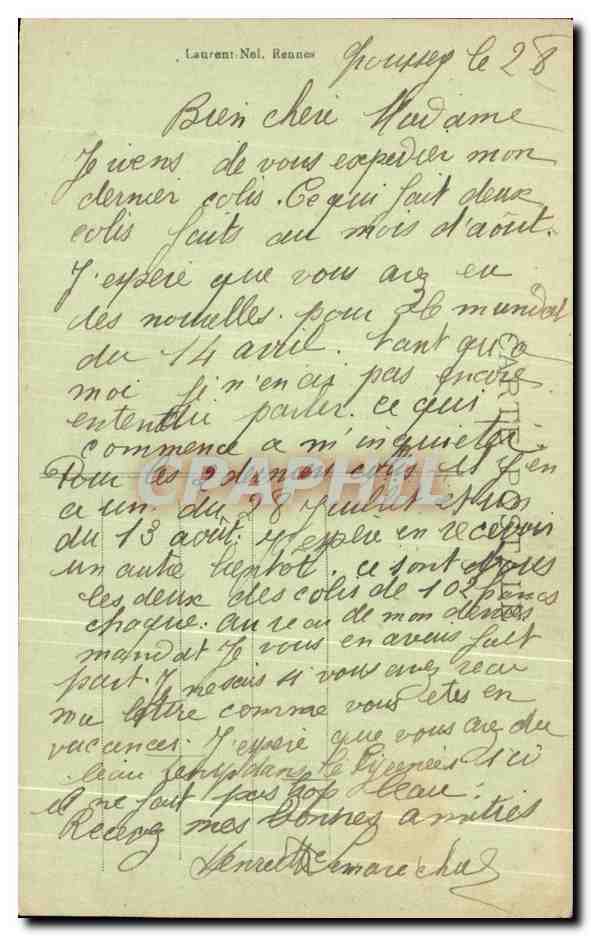 Laurent-Nel, Rennes
le 28
Bien chere Madame
Je viens de vous expedier mon
dernier colis. Ce qui fait deux
colis faits au mois d'août.
J'espere que vous avez eu
des nouvelles. pour le mandat
du 14 avril. tant qu'a
moi je n'en ai pas encore
entendu parler. ce qui
commence a m'inquieter.
Pour les 2 derniers colis il y en
a un du 28 juillet et un
du 13 août. j'espère en recevoir
un autre bientot. ce sont
les deux des colis de 102 francs
chaque. au recu de mon dernier
mandat Je vous en avais fait
part. Je ne sais si vous avez recu
ma lettre comme vous etes en
vacances. J'espere que vous avez du
beau temps dans les Pyrenees ici
il ne fait pas trop beau.
Recevez mes bonnes amitiés
CARTE POSTALE
CAPHIL